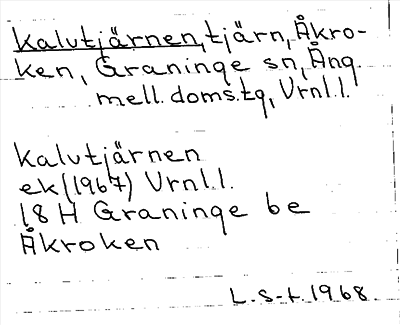 Kalvtjärnen, tjärn, Åkro-
ken, Graninge sn, Ång.
mell. doms.tg, Vrnl.l.
Kalvtjärnen
ek (1967) Vrnl.l.
18 H Graninge be
Åkroken
L. S-t. 1968.